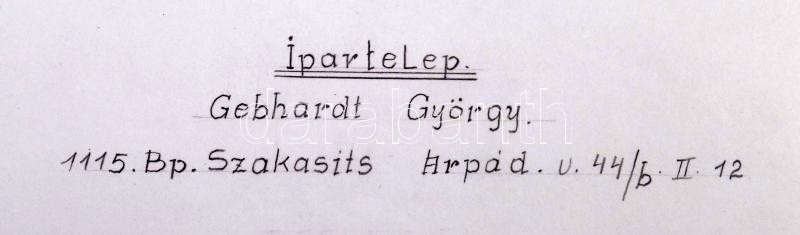 İparteLep.
Gebhardt György.
darabanth
1115. Bp. Szakasits Arpád. u. 44/b. II. 12